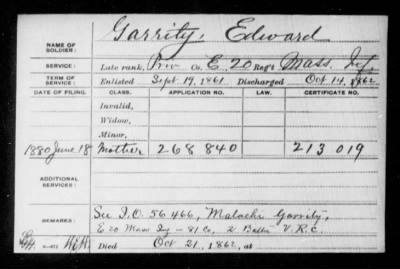 Garrity, Edward
NAME OF SOLDIER:
SERVICE: Late rank, Priv Co. E, 20 Reg't Mass. Inf.
TERM OF SERVICE: Enlisted Sept. 19, 1861 Discharged Oct 14, 1862
DATE OF FILING. CLASS. APPLICATION NO. LAW. CERTIFICATE NO.
Invalid,
Widow,
Minor,
1880 June 18 Mother 268840 213019
ADDITIONAL SERVICES:
REMARKS: See I.O. 56466, Malachi Garrity,
E 20 Mass Inf - 81 Co, 2 Battn V.R.C.
Died Oct 21, 1862, at